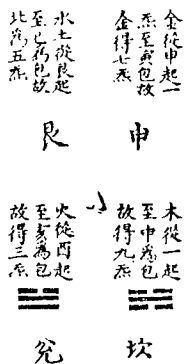 金從申起一
炁至包故
金得七炁
申
水土從艮起
至已為包故
北為五炁
艮
木從一起
至申為包
故得九炁
坎
火從酉起
至亥為包
故得三炁
兌